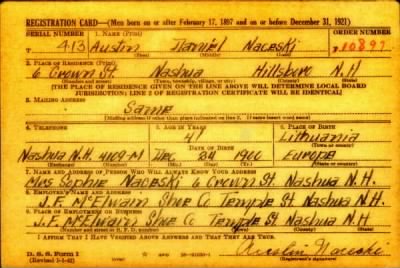 REGISTRATION CARD—(Men born on or after February 17, 1897 and on or before December 31, 1921)
SERIAL NUMBER 1. NAME (Print) ORDER NUMBER
413 Austin Daniel Naceski 10897
(First) (Middle) (Last)
2. PLACE OF RESIDENCE (Print)
6 Crown St. Nashua Hillsboro N.H.
(Number and street) (Town, township, village, or city) (County) (State)
[THE PLACE OF RESIDENCE GIVEN ON THE LINE ABOVE WILL DETERMINE LOCAL BOARD
JURISDICTION; LINE 2 OF REGISTRATION CERTIFICATE WILL BE IDENTICAL]
3. MAILING ADDRESS
Same
[Mailing address if other than place indicated on line 2. If same insert word same]
4. TELEPHONE 5. AGE IN YEARS 6. PLACE OF BIRTH
41 Lithuania
DATE OF BIRTH
Nashua N.H. 4109-M Dec 24 1900 Europe
7. NAME AND ADDRESS OF PERSON WHO WILL ALWAYS KNOW YOUR ADDRESS
Mrs Sophie Naceski 6 Crown St. Nashua N.H.
8. EMPLOYER'S NAME AND ADDRESS
J.F. McElwain Shoe Co Temple St. Nashua N.H.
9. PLACE OF EMPLOYMENT OR BUSINESS
J.F. McElwain Shoe Co Temple St. Nashua N.H
I AFFIRM THAT I HAVE VERIFIED ABOVE ANSWERS AND THAT THEY ARE TRUE.
D. S. S. Form 1
(Revised 1-1-42) (over) (Registrant's signature)